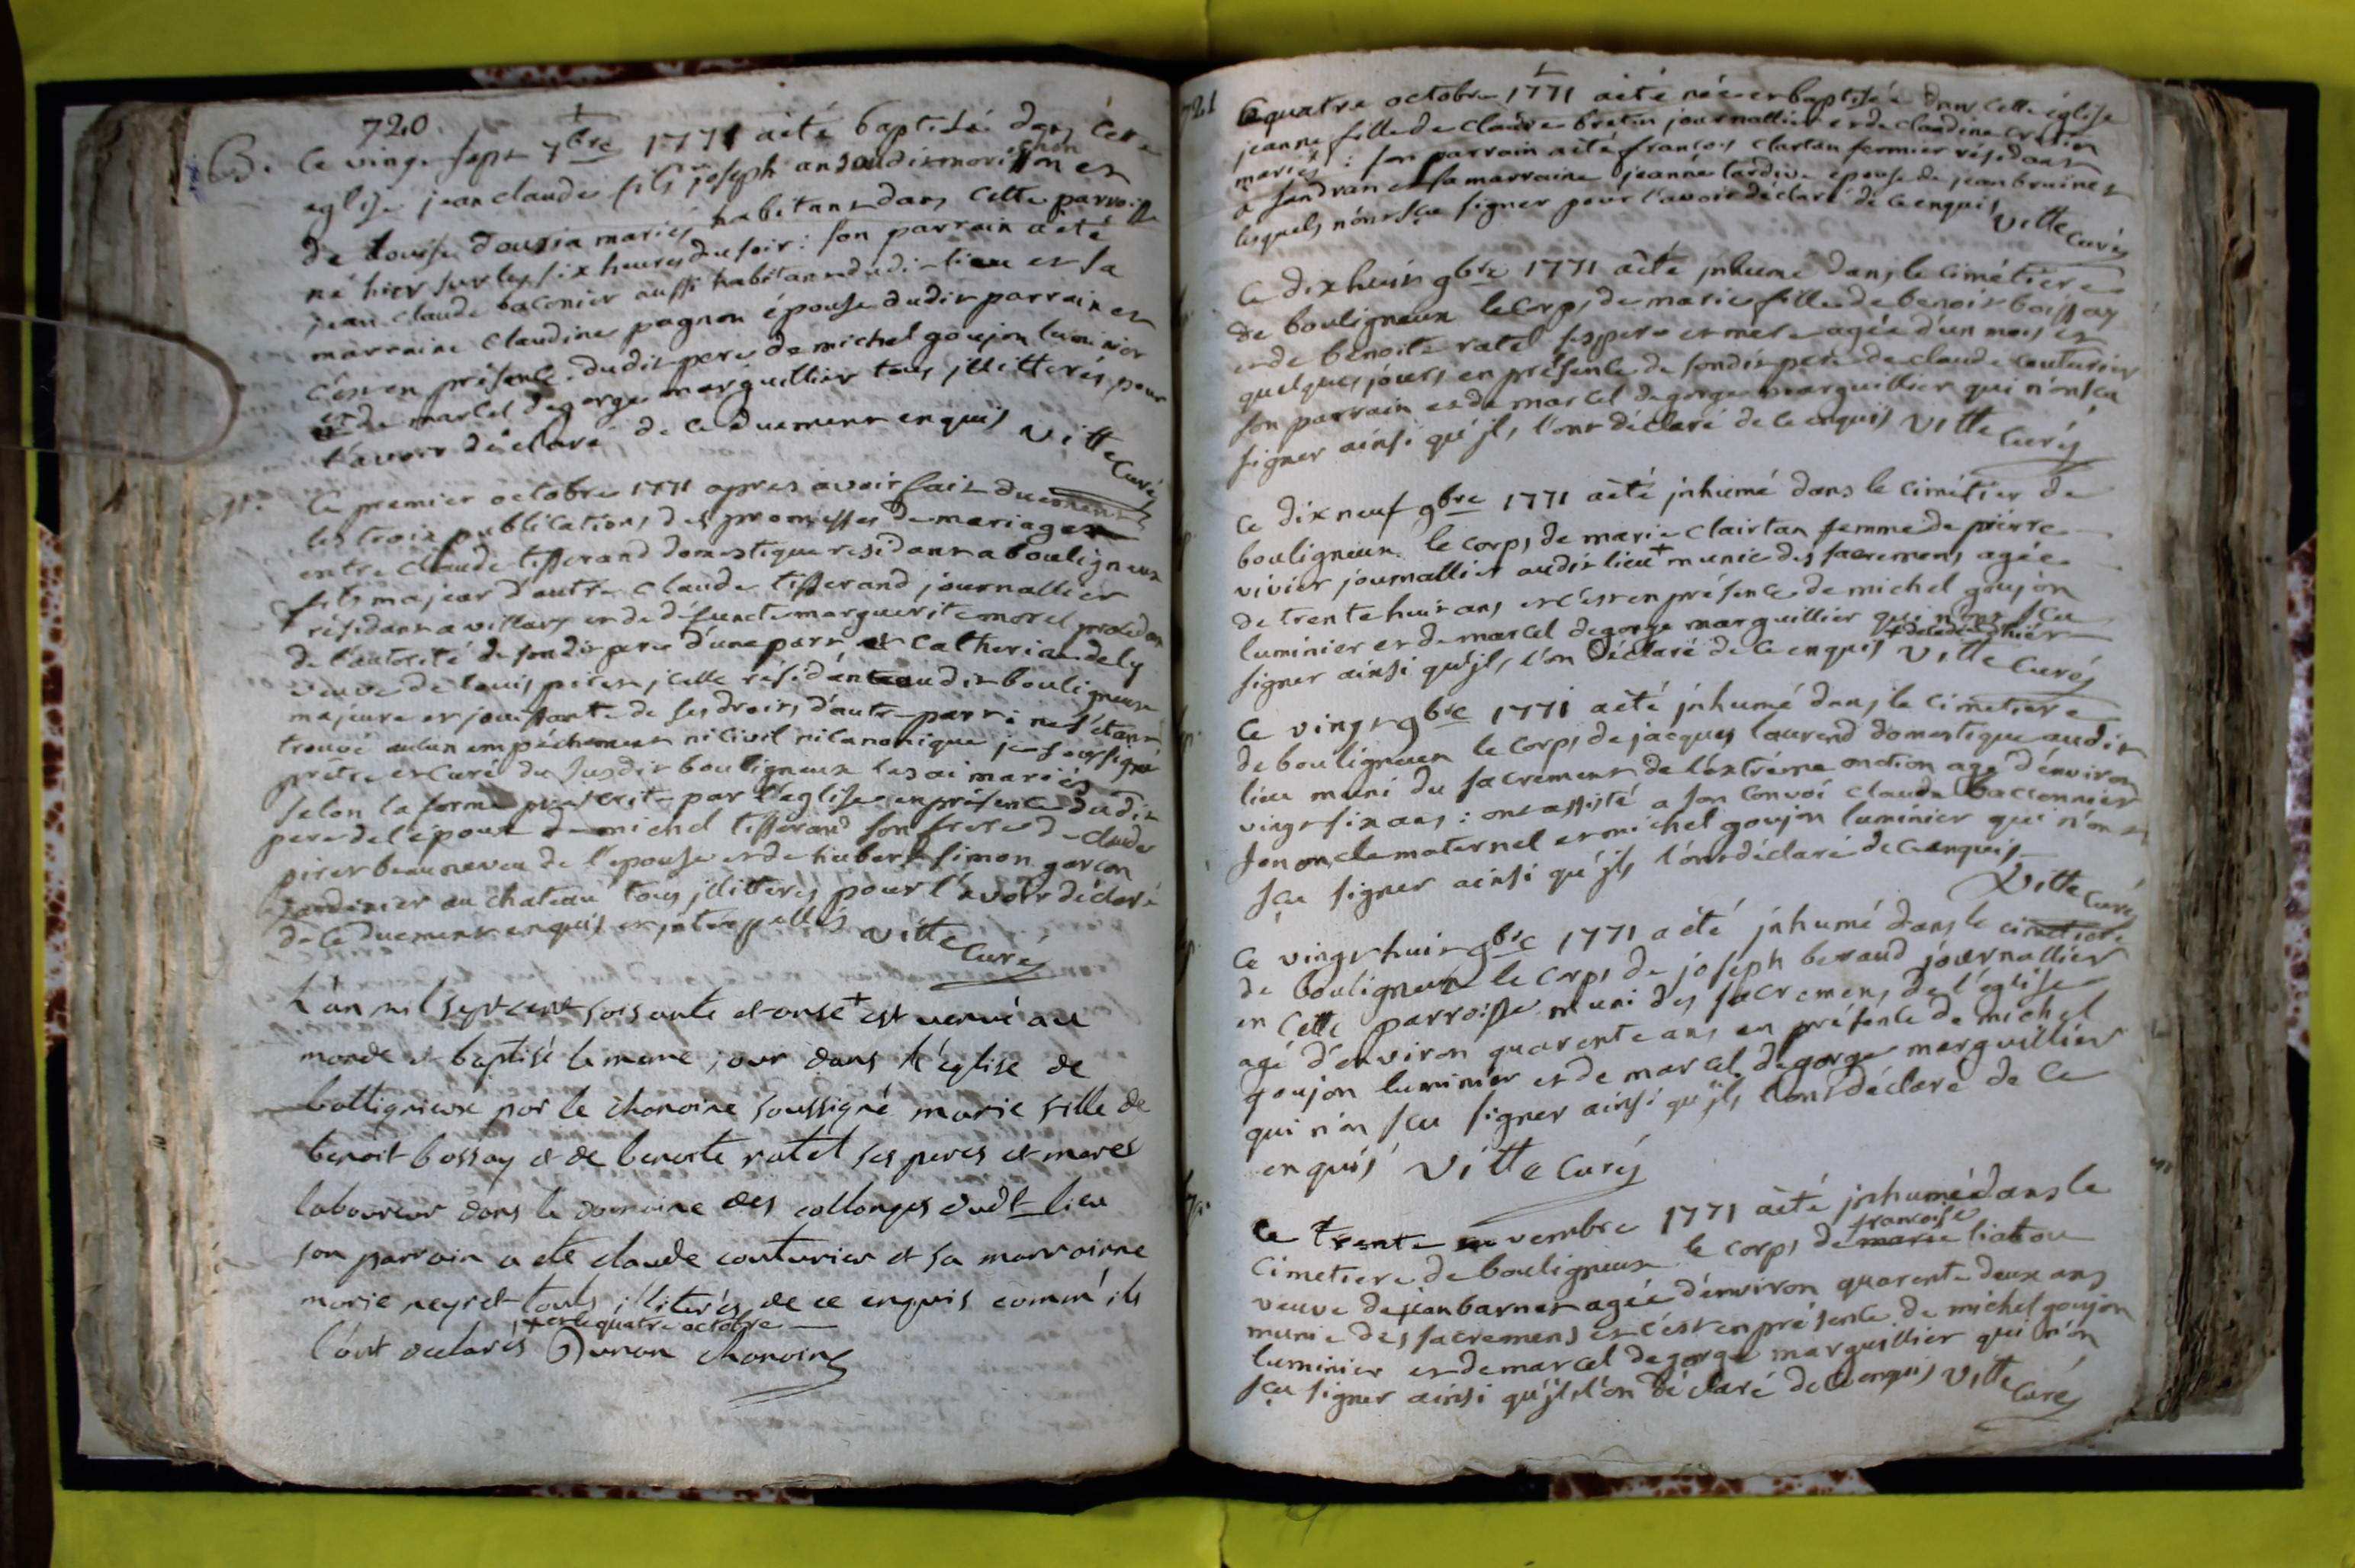 720.
B. Ce vingt sept 7bre 1771 a été baptisé dans cette
eglise jean claude fils joseph ansaudit morichon et
de louise dousia mariés habitant dans cette parroisse
né hier sur les six heures du soir : son parrain a été
jean claude baconier aussi habitant dudit lieu et sa
marraine claudine pagnon épouse dudit parrain et
c'est en présence dudit pere de michel goujon luminier
et de marcel degorge marguillier tous jllitterés pour
l'avoir déclaré de ce duement enquis vitte curé
Ce premier octobre 1771 apres avoir fait duement
les trois publications des promesses de mariage
entre claude tisserand domestique residant a bouligneux
fils majeur d'autre claude tisserand journallier
résidant a villars et de défuncte marguerite morel procedant
de l'autorité de son dit pere d'une part et catherine dely
veuve de louis piret jcelle résidante audit bouligneux
majeure et jouissante de ses droits d'autre part : ne s'étant
trouvé aucun empéchement ni civil ni canonique je soussigné
prêtre et curé du susdit bouligneux les ai mariés
selon la forme préscrite par l'eglise en présence dudit
pere de l'epoux de michel tisserand son frere de claude
piret beau neveu de l'epouse et de hubert simon garcon
jardinier au chateau tous jllitterés pour l'avoir déclaré
de ce duement enquis et jnterpellés vitte curé
L'an mil sept cent soisante et onse + est venu au
monde et baptisé le meme jour dans l'église de
bollignieux par le chanoine soussigné marie fille de
benoit bossay et de benoite ratet ses peres et meres
laboureur dans le domaine des collonges dudt lieu
son parrain a eté claude couturier et sa marrainne
marie neyret touts illiterés de ce enquis comm'ils
+ et le quatre octobre
l'ont declarés Dunan chanoine
721
Ce quatre octobre 1771 a été née et baptisée dans cette église
jeanne fille de claude bretin journallier et de claudine
mariés : son parrain a été francois clartan fermier résidant
a sandran et sa marraine jeanne tardive épouse de jean bruines
lesquels n'ont sçu signer pour l'avoir déclaré de ce enquis vitte curé
Ce dix huit 9bre 1771 a été jnhumé dans le cimétiere
de bouligneux le corps de marie fille de benoit boissay
et de benoite ratel ses pere et mere agée d'un mois et
quelques jours en présence de son dit pere de claude couturier
son parrain et de marcel degorge marguillier qui n'on sçu
signer ainsi qu'jls l'ont déclaré de ce enquis vitte curé
Ce dix neuf 9bre 1771 a été jnhumé dans le cimétier de
bouligneux le corps de marie clairtan femme de pierre
vivier journallier audit lieu + munie des sacremens agée
de trente huit ans et c'est en présence de michel goujon
luminier et de marcel degorge marguillier qui n'ont sçu
+ décédée d'hier
signer ainsi qu'jls l'on déclaré de ce enquis vitte curé
Ce vingt 9bre 1771 a été jnhumé dans le cimetiere
de bouligneux le corps de jacques laurend domestique audit
lieu muni du sacrement de l'extréme onction agé d'environ
vingt six ans : ont assisté a son convoi claude bacconnier
son oncle maternel et michel goujon luminier qui n'ont
sçu signer ainsi qu'jls l'ont déclaré de ce enquis
vitte curé
Ce vingt huit 9bre 1771 a été jnhumé dans le cimetiere
de bouligneux le corps de joseph beraud journallier
en cette parroisse muni des sacremens de l'eglise
agé d'environ quarente ans en présence de michel
goujon luminier et de marcel degorge marguillier
qui n'on sçu signer ainsi qu'jls l'ont déclaré de ce
enquis vitte curé
Ce trente novembre 1771 a été jnhumé dans le
francoise
cimetiere de bouligneux le corps de marie liatou
veuve de jean barnet agée d'environ quarente deux ans
munie des sacremens et c'est en présence de michel goujon
luminier et de marcel degorge marguillier qui n'on
sçu signer ainsi qu'jls l'on déclaré de ce enquis vitte curé